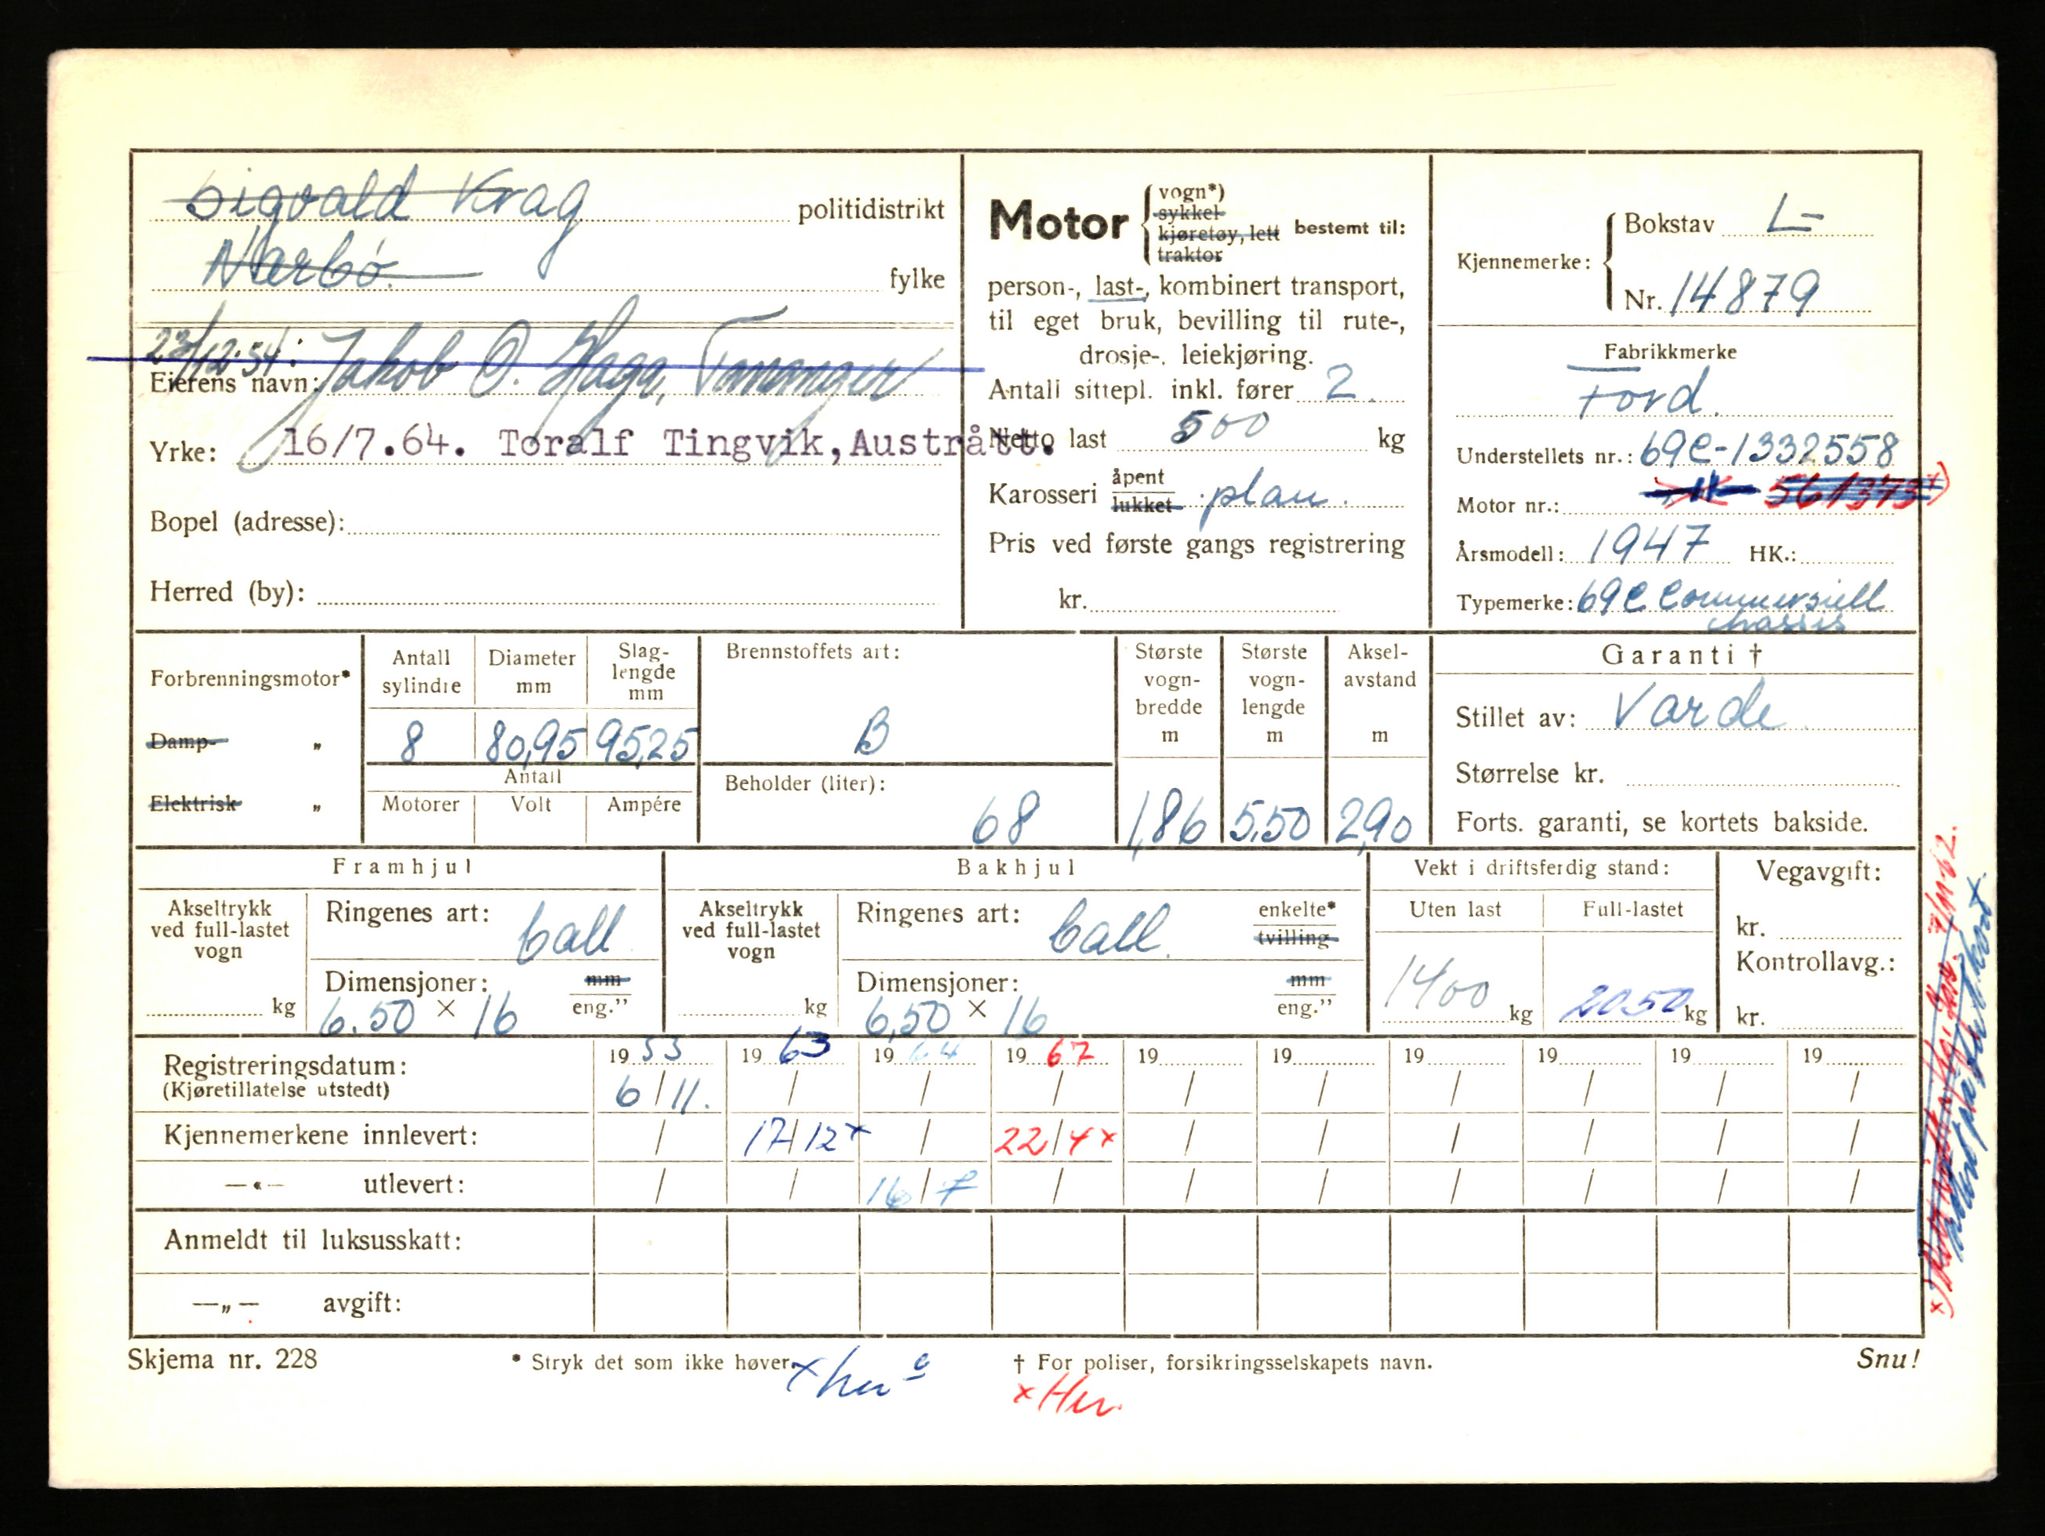 Sigvald Krag politidistrikt
Nærbø. fylke
23/12-54: Jakob O. Haga, Tananger
Eierens navn:
Yrke: 16/7.64. Toralf Tingvik, Austrått.
Bopel (adresse):
Herred (by):
Motor { vogn*)
sykkel
kjøretøy, lett
traktor
bestemt til:
person-, last-, kombinert transport,
til eget bruk, bevilling til rute-,
drosje-. leiekjøring.
Antall sittepl. inkl. fører 2.
Netto last 500 kg
Karosseri åpent
lukket plan.
Pris ved første gangs registrering
kr.
Kjennemerke: { Bokstav L-
Nr. 14879
Fabrikkmerke
Ford.
Understellets nr.: 69C-1332558
Motor nr.: 561373 x)
Årsmodell: 1947 HK.:
Typemerke: 69C Commersiell
chassis
Forbrenningsmotor*
Damp- „
Elektrisk „
Antall sylindre
8
Diameter mm
80,95
Slag-lengde mm
95,25
Antall
Motorer Volt Ampére
Brennstoffets art:
B
Beholder (liter):
68
Største vogn-bredde m
1,86
Største vogn-lengde m
5,50
Aksel-avstand m
2,90
Garanti †
Stillet av: Varde
Størrelse kr.
Forts. garanti, se kortets bakside.
Framhjul
Akseltrykk ved full-lastet vogn
kg
Ringenes art: ball
Dimensjoner: mm
6.50 × 16 eng.”
Bakhjul
Akseltrykk ved full-lastet vogn
kg
Ringenes art: ball. enkelte*
tvilling
Dimensjoner: mm
6,50 × 16 eng.”
Vekt i driftsferdig stand:
Uten last Full-lastet
1400 kg 2050 kg
Vegavgift:
kr.
Kontrollavg.:
kr.
Registreringsdatum: 19 53 19 63 19 64 19 67 19 19 19 19 19 19
(Kjøretillatelse utstedt) 6/11. / / / / / / / / /
Kjennemerkene innlevert: / 17/12 x / 22/4 x / / / / / /
—«— utlevert: / / 16/7 / / / / / / /
Anmeldt til luksusskatt:
—„— avgift:
Skjema nr. 228
* Stryk det som ikke høver.
† For poliser, forsikringsselskapets navn.
Snu!
x her
x Her.